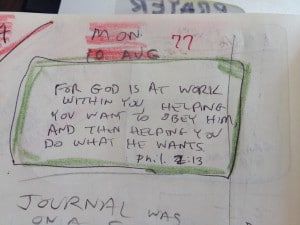 PRAYER
MON 77
10 AUG
FOR GOD IS AT WORK
WITHIN YOU, HELPING
YOU WANT TO OBEY HIM,
AND THEN HELPING YOU
DO WHAT HE WANTS
Phil. 2:13
JOURNAL WAS
ON A